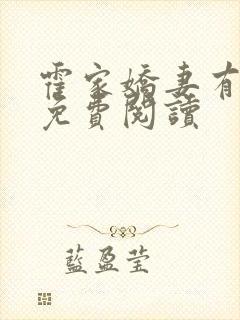 霍家嬌妻有
免費閱讀
藍盈瑩